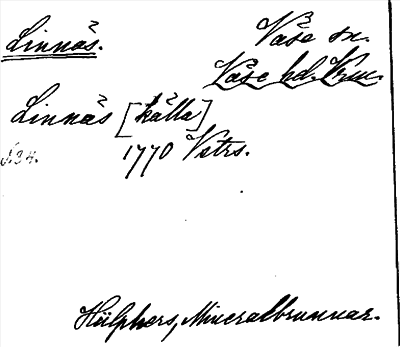 Linnås.
Våse sn.
Våse hd. Vrm.
Linnås [källa]
S. 34.
1770 Vstrs.
Hülphers, Mineralbrunnar.